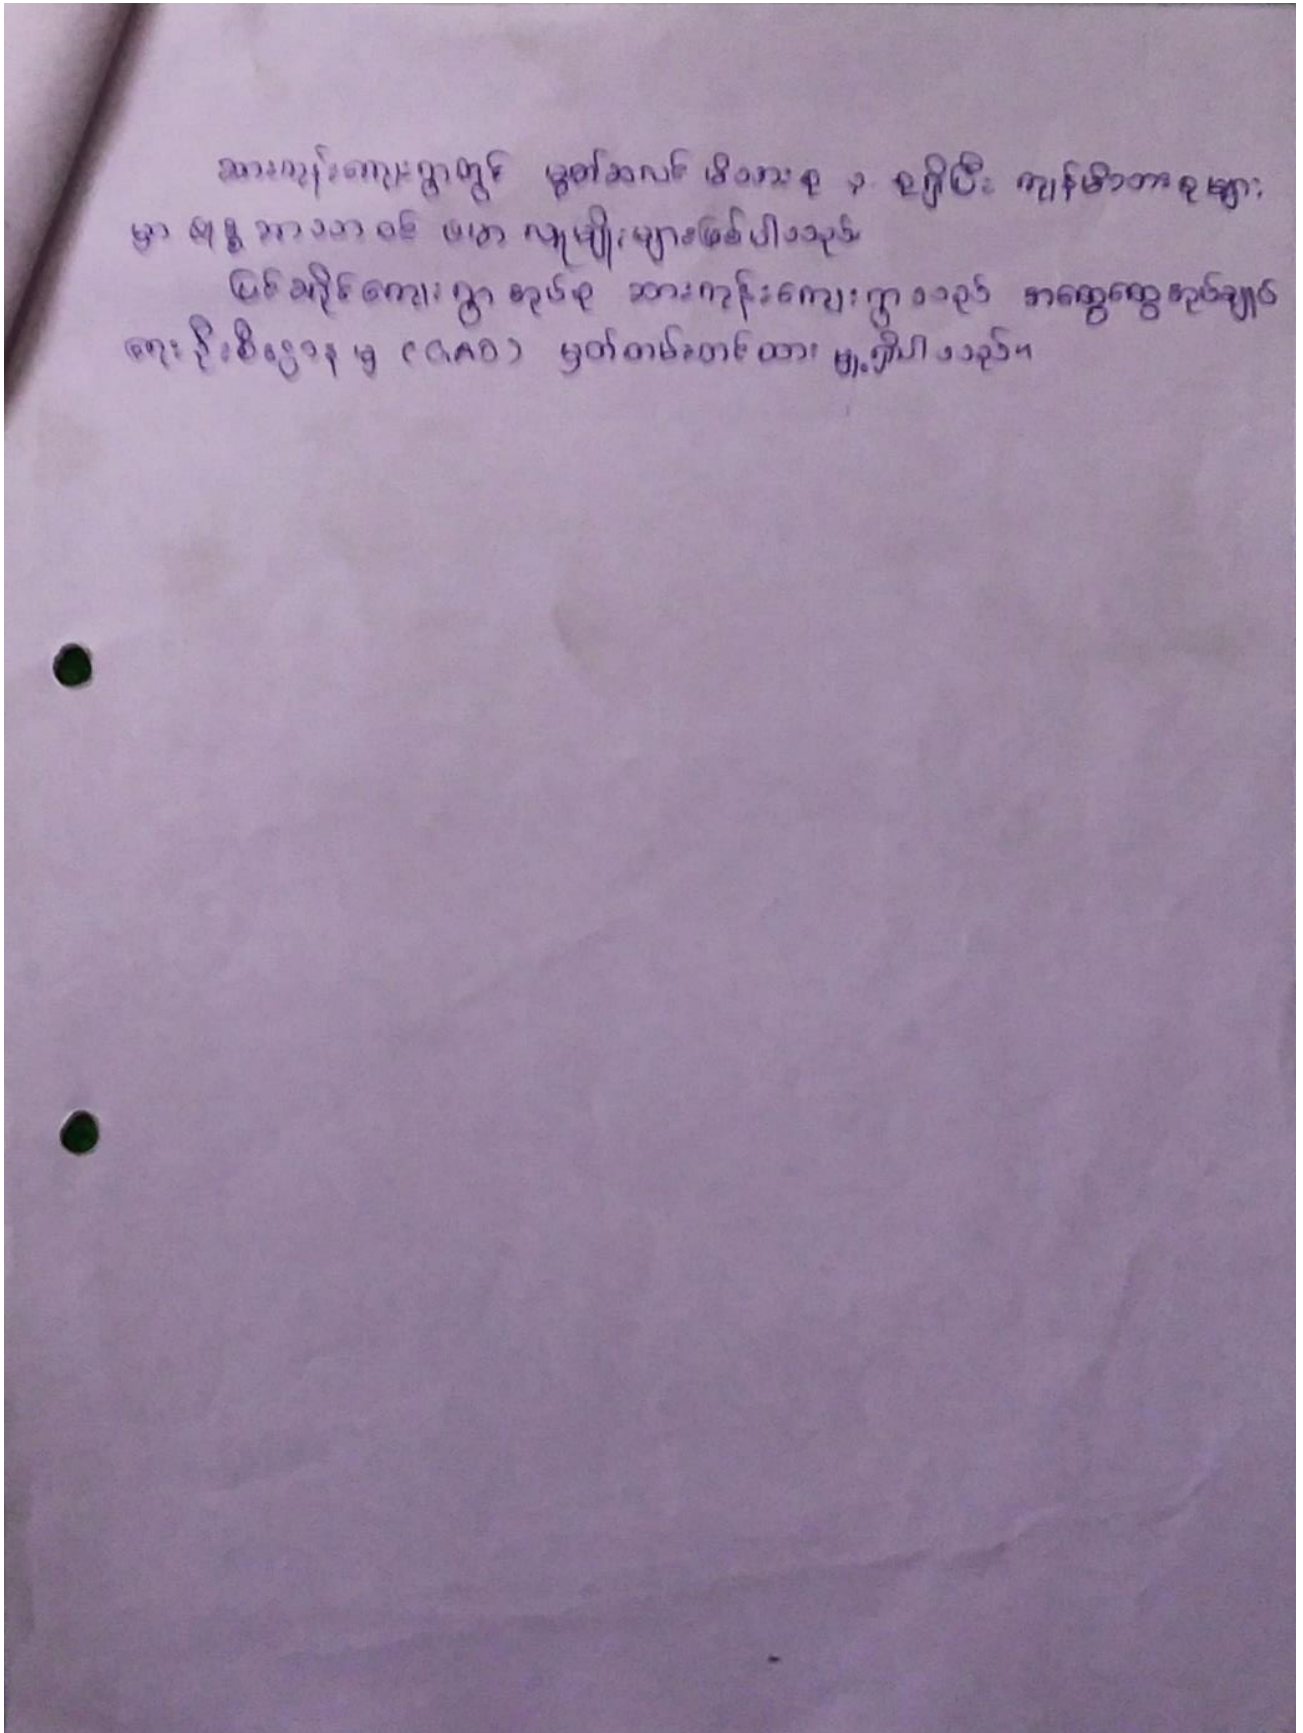 ဆားကုန်းကျေးရွာတွင် မွတ်ဆလင် မိသားစု ၃ စုရှိပြီး ကျန်မိသားစုများ
မှာ ဗုဒ္ဓဘာသာဝင် ဗမာ လူမျိုးများဖြစ်ပါသည်
မြင်လှိုင်ကျေးရွာအုပ်စု ဆားကုန်းကျေးရွာသည် အထွေထွေအုပ်ချုပ်
ရေးဦးစီးဌာန မှ (GAD) မှတ်တမ်းတင်ထား မှု့ရှိပါသည်။